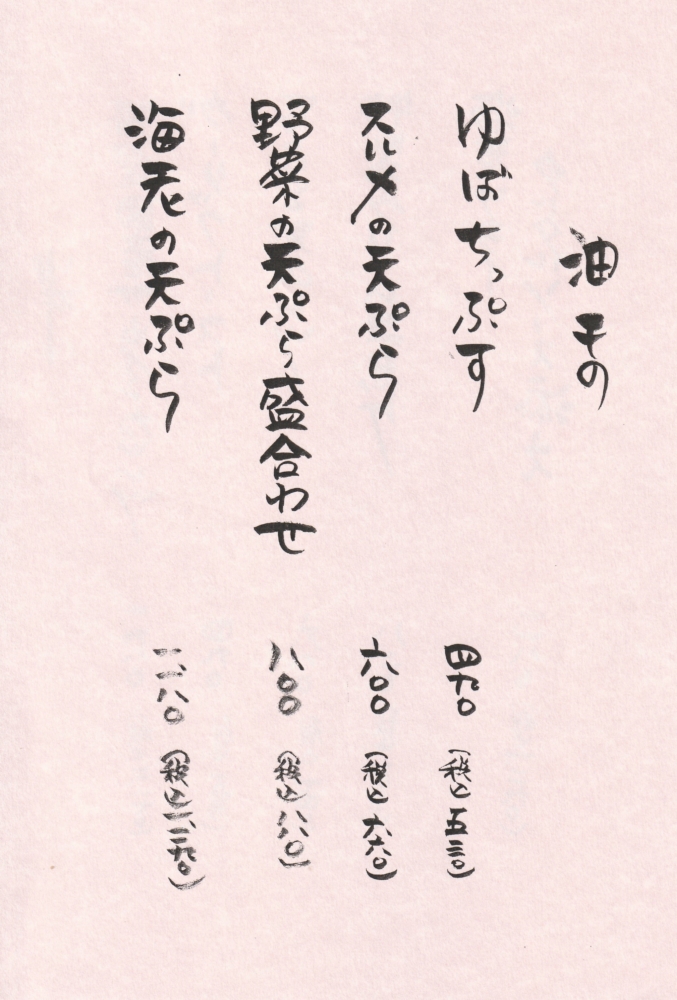 油もの
ゆばちっぷす 四九〇 (税込五三〇)
スルメの天ぷら 六〇〇 (税込六六〇)
野菜の天ぷら盛合わせ 八〇〇 (税込八八〇)
海老の天ぷら 一、一八〇 (税込一、二九〇)